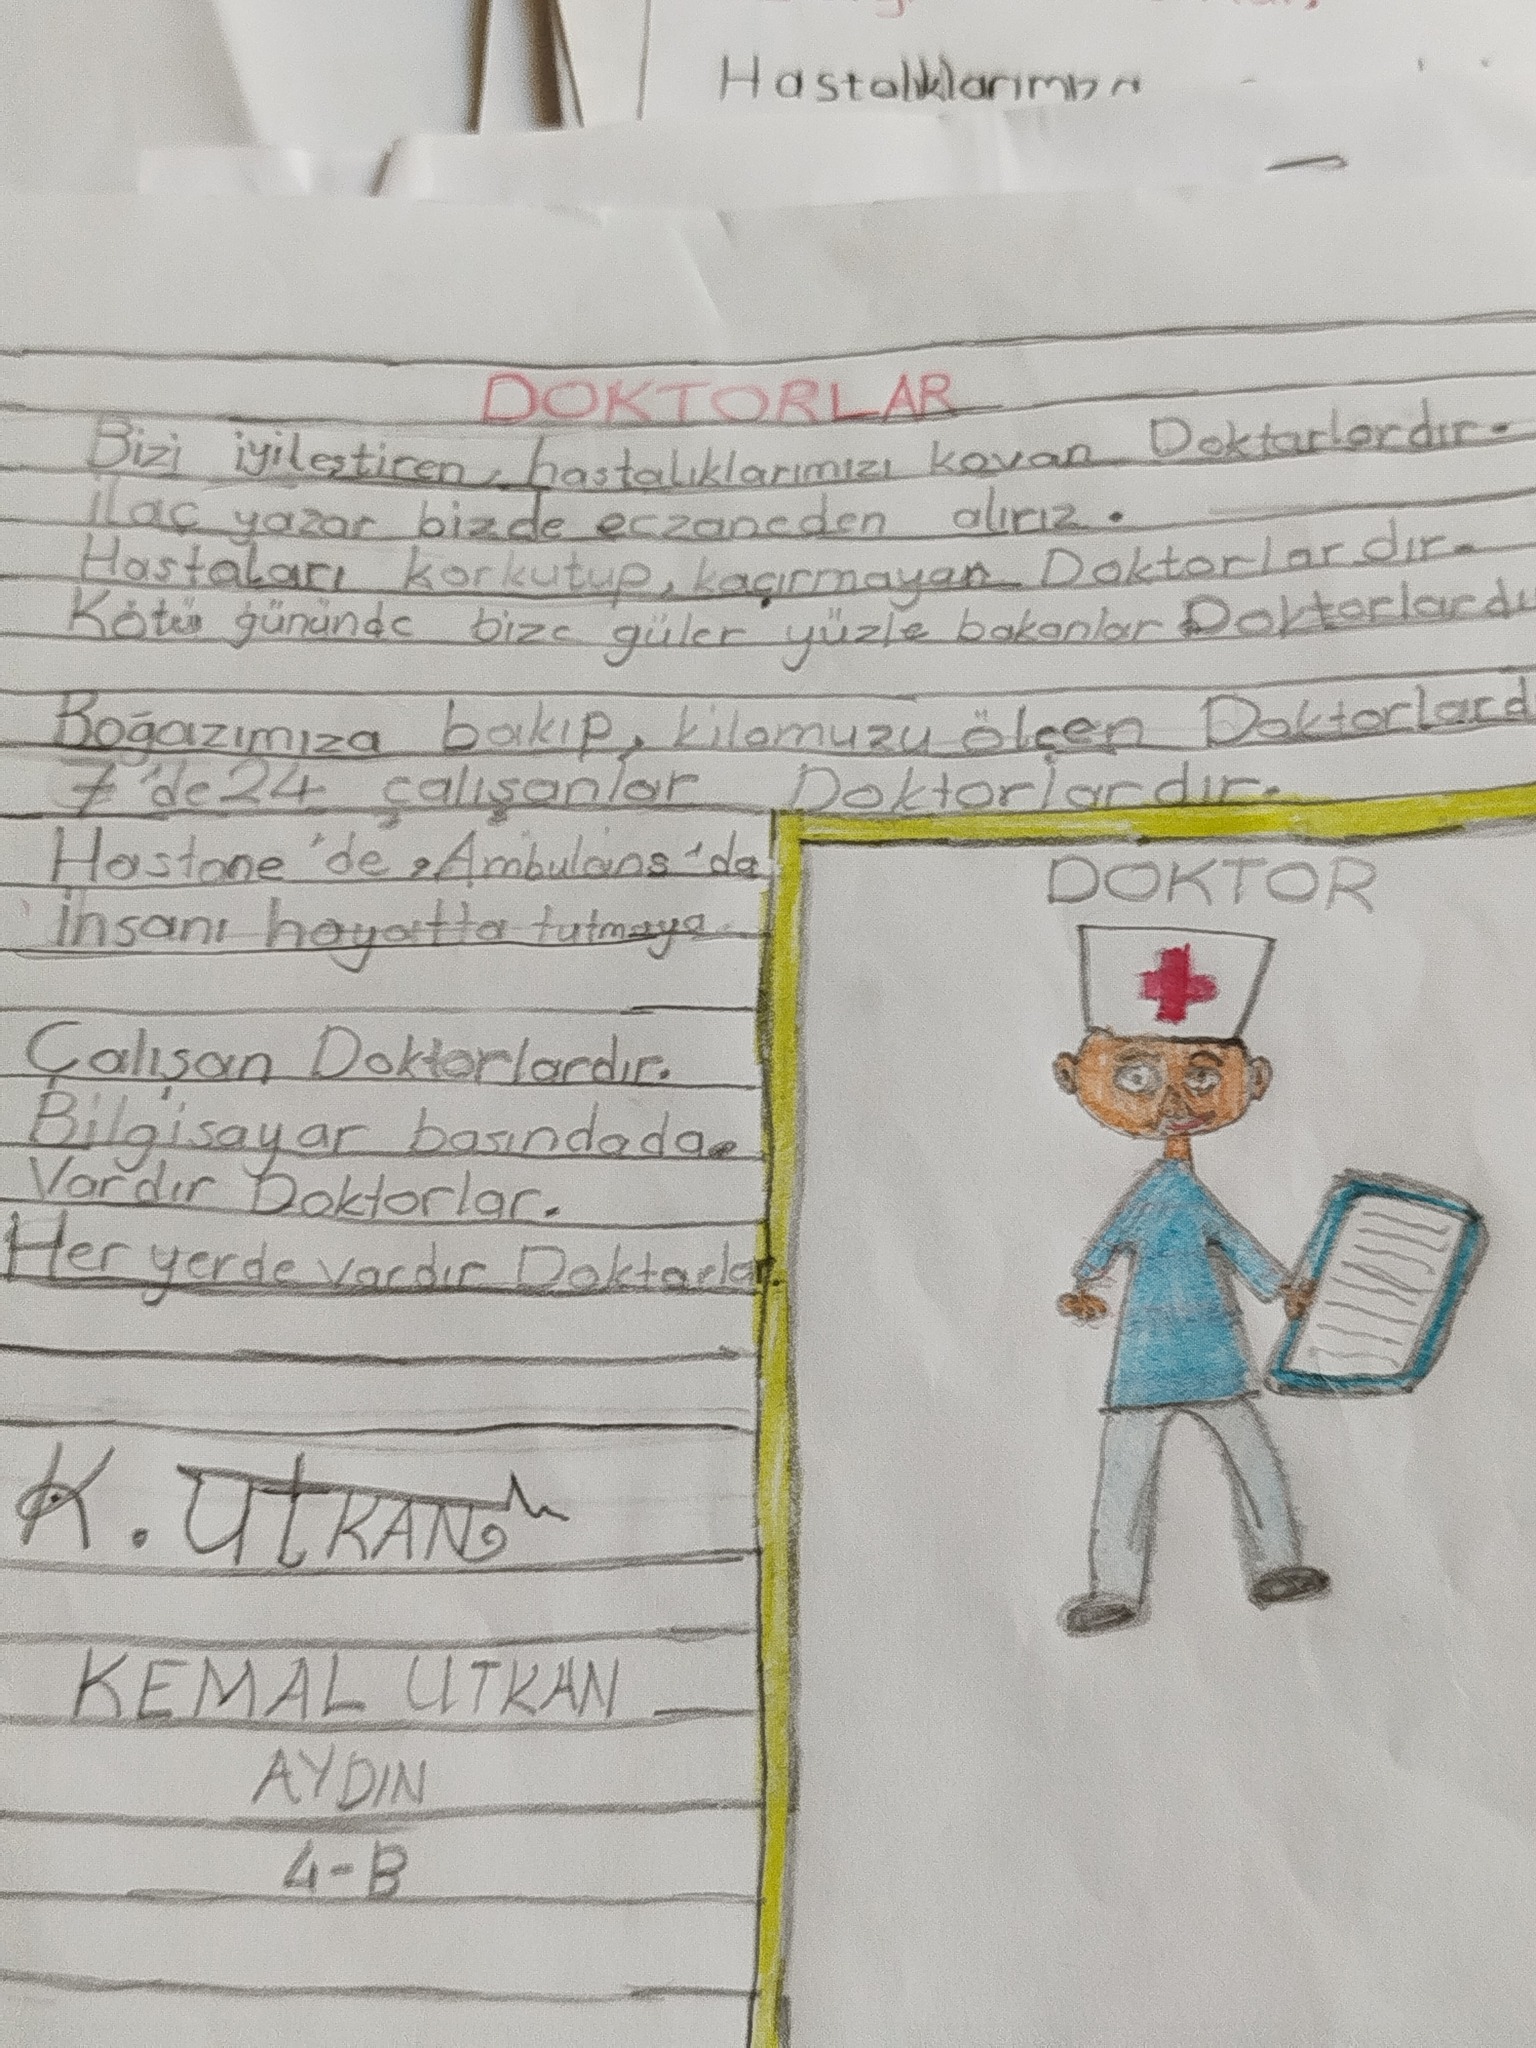 Hastalıklarımızı
DOKTORLAR
Bizi iyileştiren, hastalıklarımızı kovan Doktorlardır.
ilaç yazar bizde eczaneden alırız.
Hastaları korkutup, kaçırmayan Doktorlardır.
Kötü gününde bize güler yüzle bakanlar Doktorlardı
Boğazımıza bakıp, kilomuzu ölçen Doktorlard
7'de 24 çalışanlar Doktorlardır.
Hastane'de, Ambulans'da
İnsanı hayatta tutmaya
Çalışan Doktorlardır.
Bilgisayar başındada
Vardır Doktorlar.
Her yerde vardır Doktorlar.
K. UtKAN
KEMAL UTKAN
AYDIN
4-B
DOKTOR